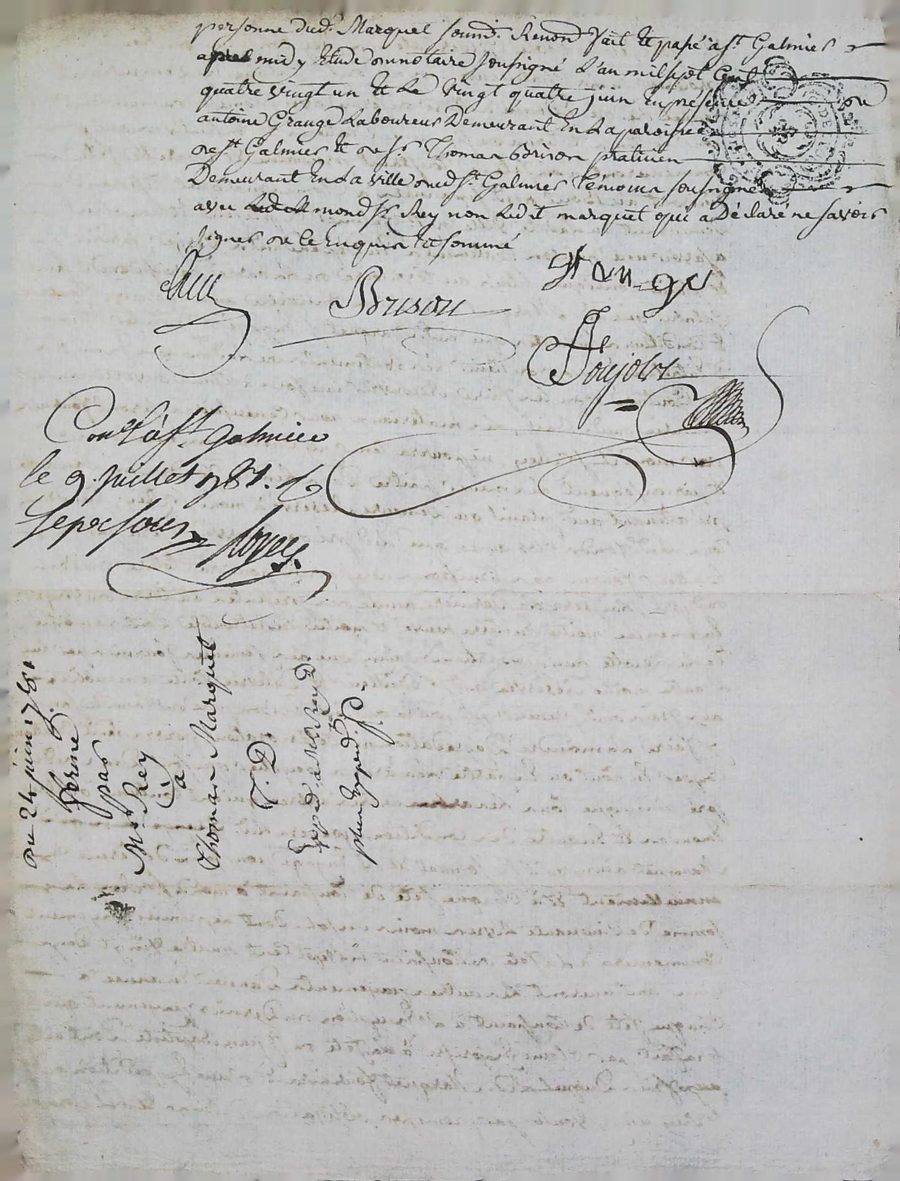 personne dud. Marquet soumis. Renond. fait et passé a st. Galmier
après midy Etude du notaire soussigné L'an mil sept Cent
quatre vingt un et Le vingt quatre juin En presence
antoine Grange Laboureur Demeurant En La paroisse
de st. Galmier et de sr. Thomas Brison praticien
Demeurant En La ville dud st. Galmier Témoins soussignés
avec mond sr. Rey non Ledit marquet qui a Déclaré ne savoir
signer de ce Enquis et sommé
Rey
Brison
grange
Con.lé a st. galmier
le 9. juillet 1781.
Du 24 juin 1781
ferme
par
Mr. Rey
à
Thomas Marquet
Exped. a Mr. Rey
plus Exped.